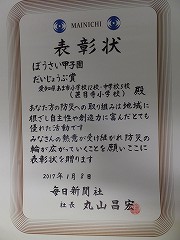 MAINICHI
表彰状
ぼうさい甲子園
だいじょうぶ賞
愛知県あま市小学校12校・中学校5校
(甚目寺小学校) 殿
あなた方の防災への取り組みは地域に
根ざし自主性や創造力に富んだとても
優れた活動です
みなさんの熱意が受け継がれ防災の
輪が広がっていくことを願いここに
表彰状を贈ります
2017年1月8日
毎日新聞社
社長 丸山昌宏